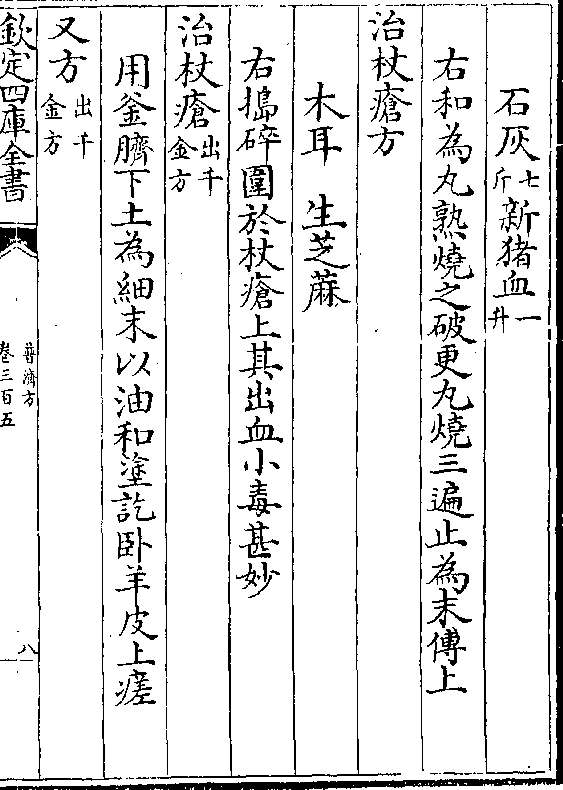 石灰七斤新猪血一升
右和為丸熟燒之破更丸燒三遍止為末傅上
治杖瘡方
木耳　生芝蔴
右搗碎圍於杖瘡上其出血小毒甚妙
治杖瘡出千金方
用釜臍下土為細末以油和塗訖卧羊皮上瘥
又方出千金方
欽定四庫全書
普濟方
卷三百五
八